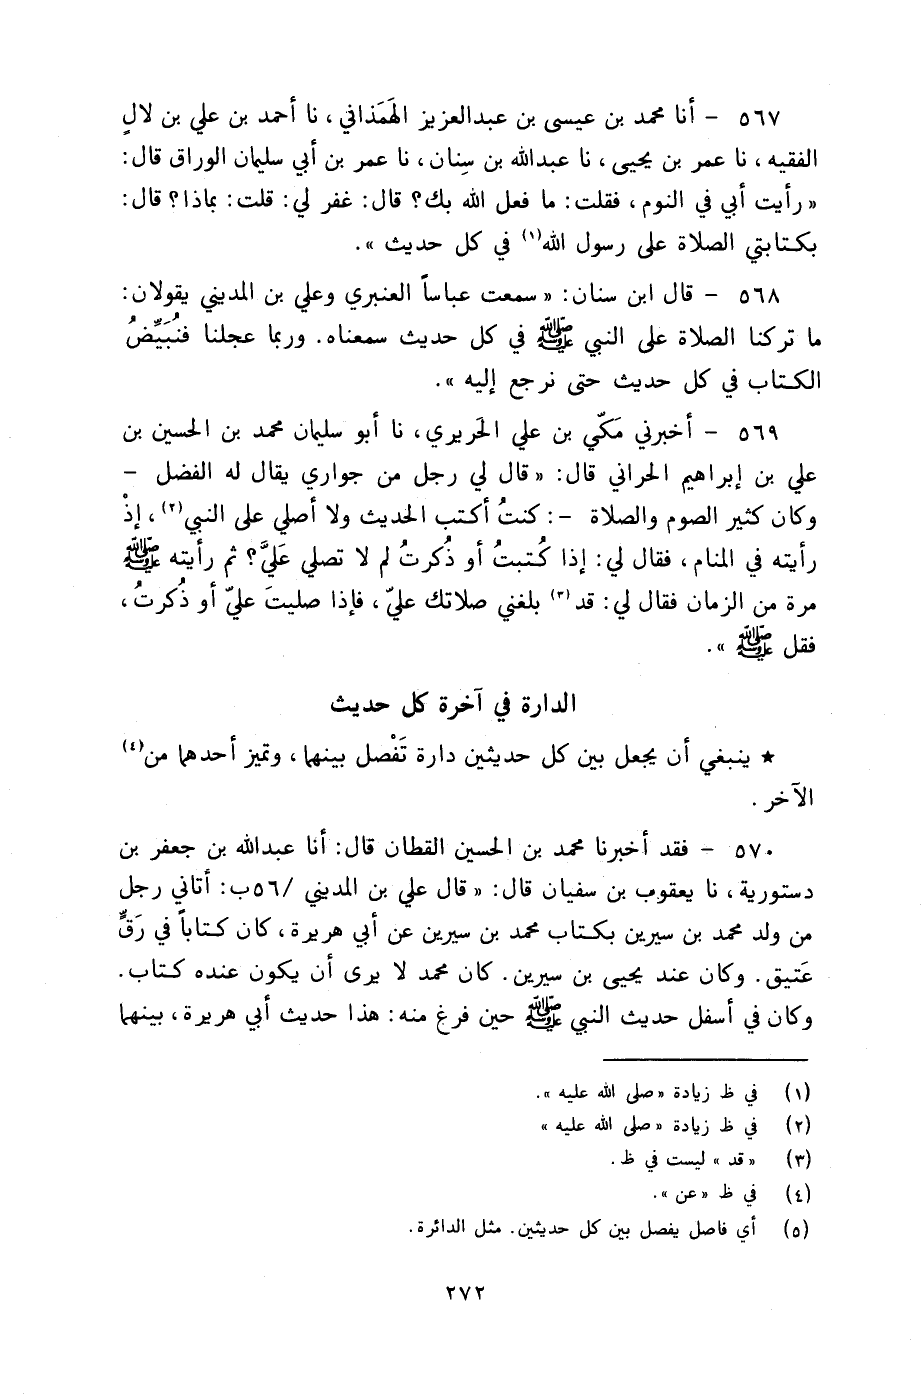 ٥٦٧ - أنا محمد بن عيسى بن عبدالعزيز الهَمَذاني، نا أحمد بن علي بن لالٍ
الفقيه، نا عمر بن يحيى، نا عبدالله بن سِنان، نا عمر بن أبي سليمان الوراق قال:
« رأيت أبي في النوم، فقلت: ما فعل الله بك؟ قال: غفر لي: قلت: بماذا؟ قال:
بكتابتي الصلاة على رسول الله(١) في كل حديث ».
٥٦٨ - قال ابن سنان: « سمعت عباساً العنبري وعلي بن المديني يقولان:
ما تركنا الصلاة على النبي ﷺ في كل حديث سمعناه. وربما عجلنا فنُبَيِّضُ
الكتاب في كل حديث حتى نرجع إليه ».
٥٦٩ - أخبرني مَكّي بن علي الحَريري، نا أبو سليمان محمد بن الحسين بن
علي بن إبراهيم الحراني قال: « قال لي رجل من جواري يقال له الفضل -
وكان كثير الصوم والصلاة -: كنتُ أكتب الحديث ولا أصلي على النبي(٢)، إذْ
رأيته في المنام، فقال لي: إذا كُتبتُ أو ذُكرتُ لم لا تصلي عَليَّ؟ ثم رأيته ﷺ
مرة من الزمان فقال لي: قد(٣) بلغني صلاتك عليّ، فإذا صليتَ عليّ أو ذُكرتُ،
فقل ﷺ ».
الدارة في آخرة كل حديث
★ ينبغي أن يجعل بين كل حديثين دارة تَفْصل بينهما، وتميز أحدهما من(٤)
الآخر.
٥٧٠ - فقد أخبرنا محمد بن الحسين القطان قال: أنا عبدالله بن جعفر بن
دستورية، نا يعقوب بن سفيان قال: « قال علي بن المديني /٥٦ب: أتاني رجل
من ولد محمد بن سيرين بكتاب محمد بن سيرين عن أبي هريرة، كان كتاباً في رَقٍّ
عَتيق. وكان عند يحيى بن سيرين. كان محمد لا يرى أن يكون عنده كتاب.
وكان في أسفل حديث النبي ﷺ حين فرغ منه: هذا حديث أبي هريرة، بينهما
(١) في ظ زيادة « صلى الله عليه ».
(٢) في ظ زيادة « صلى الله عليه »
(٣) « قد » ليست في ظ.
(٤) في ظ « عن ».
(٥) أي فاصل يفصل بين كل حديثين. مثل الدائرة.
٢٧٢